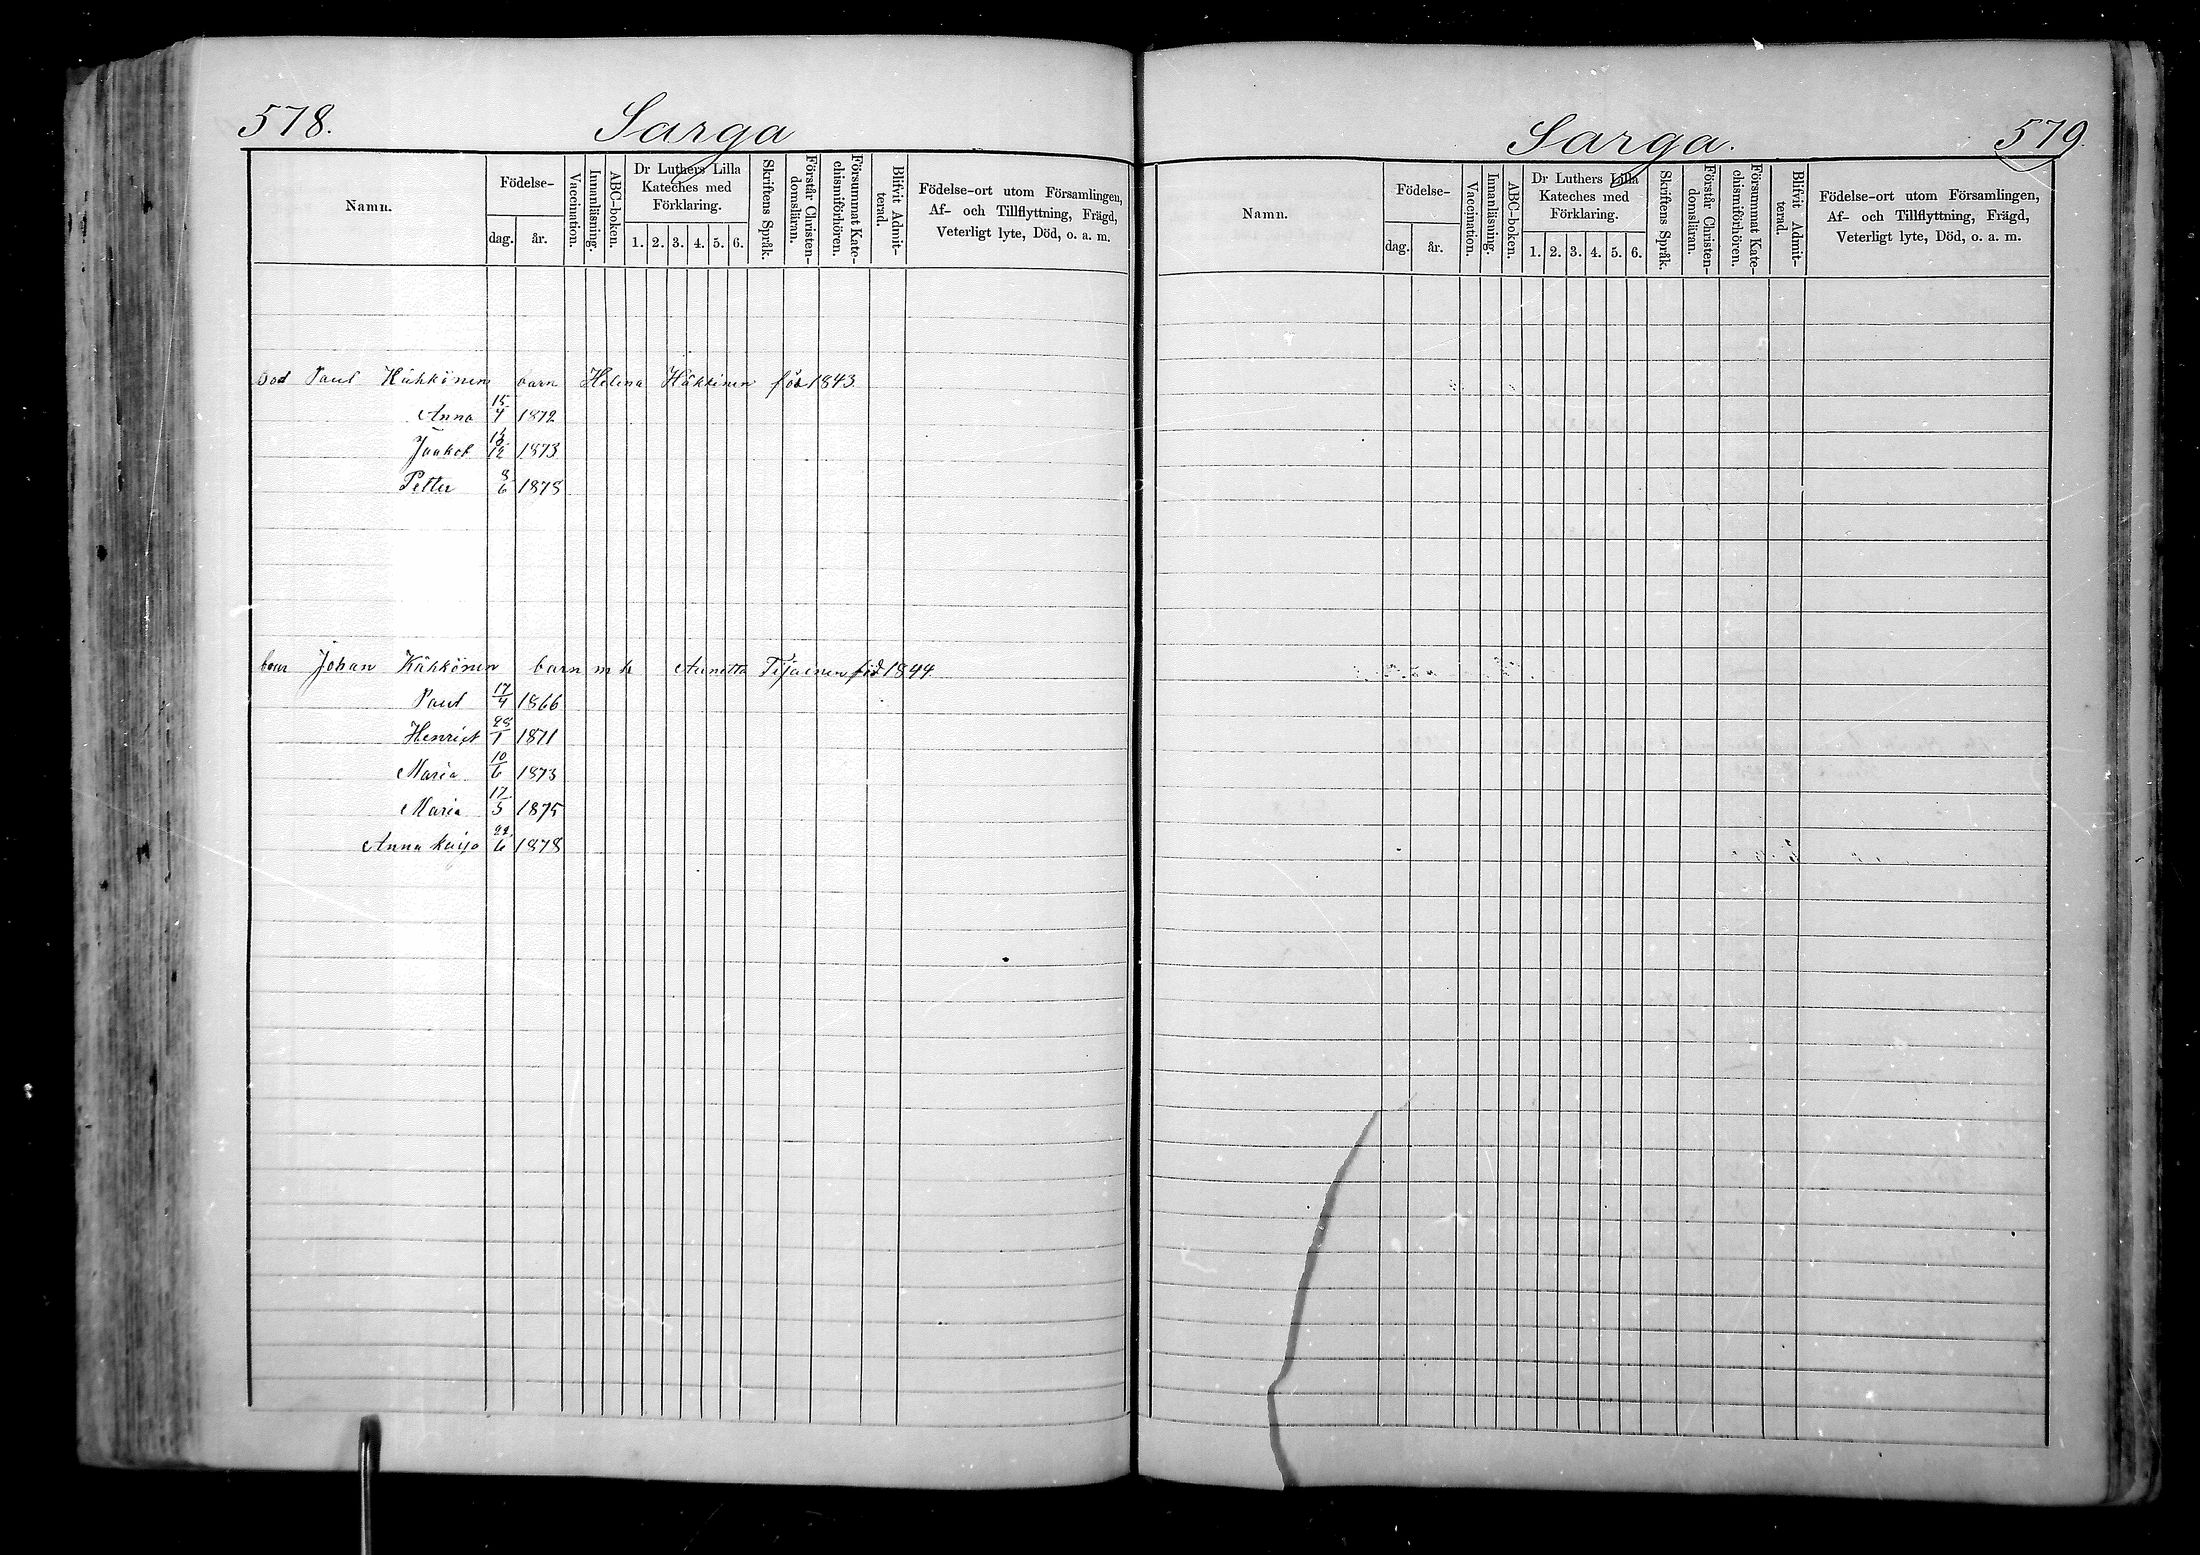 578.
Sarga
Namn.
Födelse-
dag.
år.
Vaccination.
Innanläsning.
ABC-boken.
Dr Luthers Lilla
Kateches med
Förklaring.
1. 2. 3. 4. 5. 6.
Skriftens Språk.
Förstår Christen-
domsläran.
Försummat Kate-
chismiförhören.
Blifvit Admit-
terad.
Födelse-ort utom Församlingen,
Af- och Tillflyttning, Frägd,
Veterligt lyte, Död, o. a. m.
Paul Kähkönen barn Helena Häkkinen föd 1843
Anna 15/4 1872
Jaakob 12 1873
Petter 8/6 1878
Johan Kähkönen barn m h Annetta föd 1844
Paul 17/4 1866
Henrick 28/1 1871
Maria 10/6 1873
Maria 17/5 1875
Anna Kaisa 22/6 1878
Sarga.
579.
Namn.
Födelse-
dag.
år.
Vaccination.
Innanläsning.
ABC-boken.
Dr Luthers Lilla
Kateches med
Förklaring.
1. 2. 3. 4. 5. 6.
Skriftens Språk.
Förstår Christen-
domsläran.
Försummat Kate-
chismiförhören.
Blifvit Admit-
terad.
Födelse-ort utom Församlingen,
Af- och Tillflyttning, Frägd,
Veterligt lyte, Död, o. a. m.